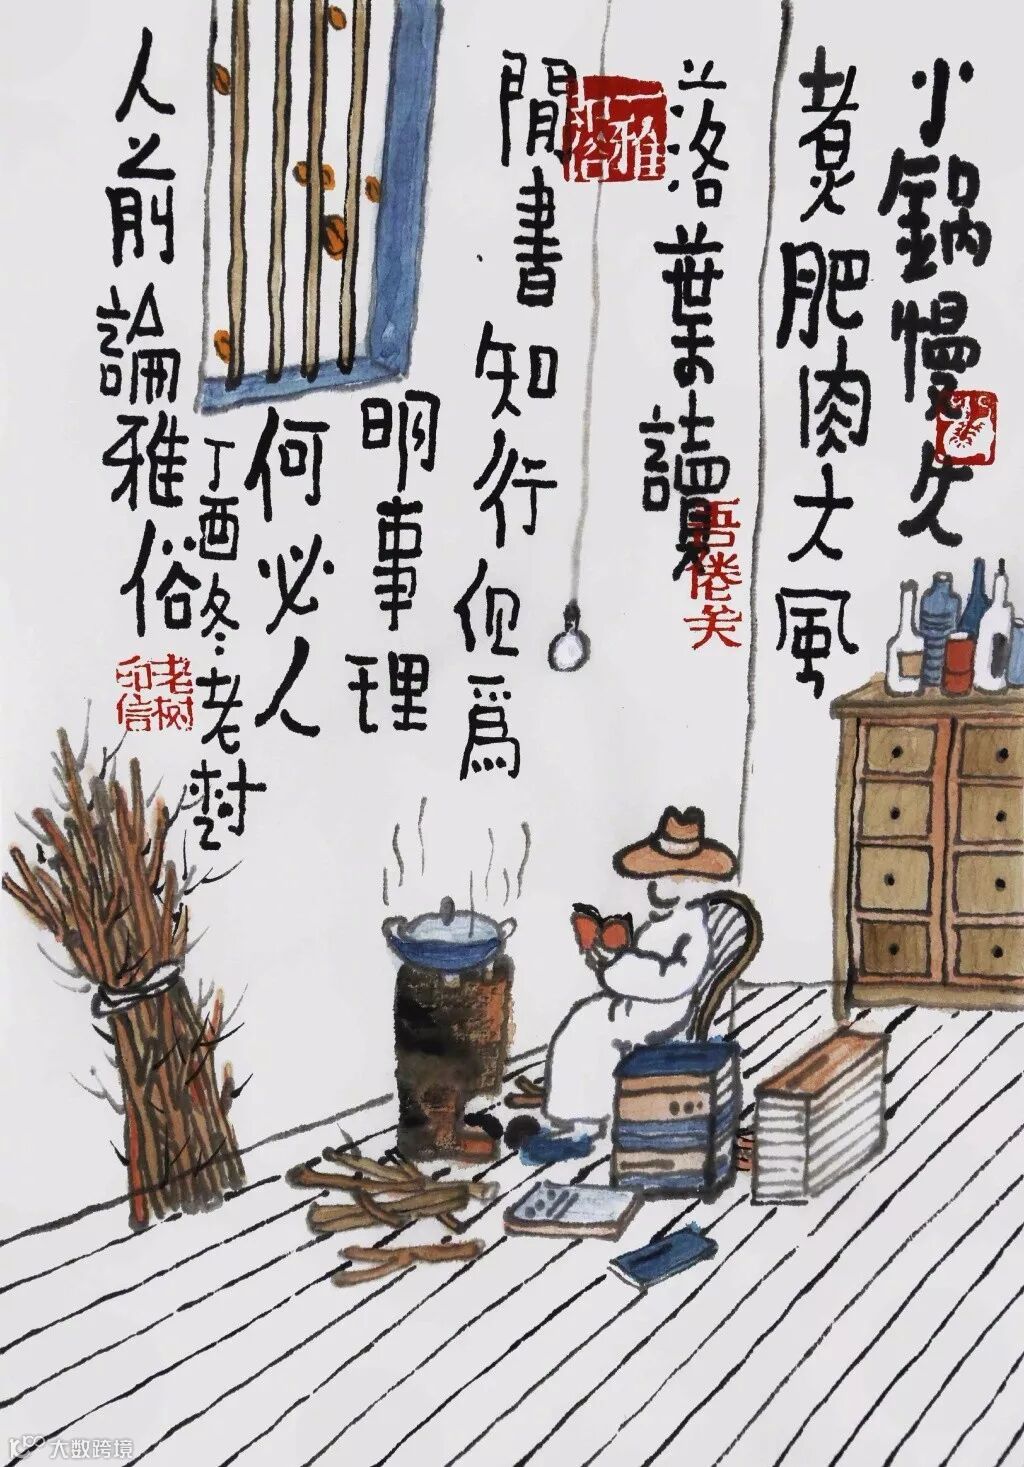 小鍋慢火
煮肥肉大風
落葉讀
閒書知行但爲
明事理
何必人
人前論雅俗
丁酉冬老樹
老树印信
大数跨境